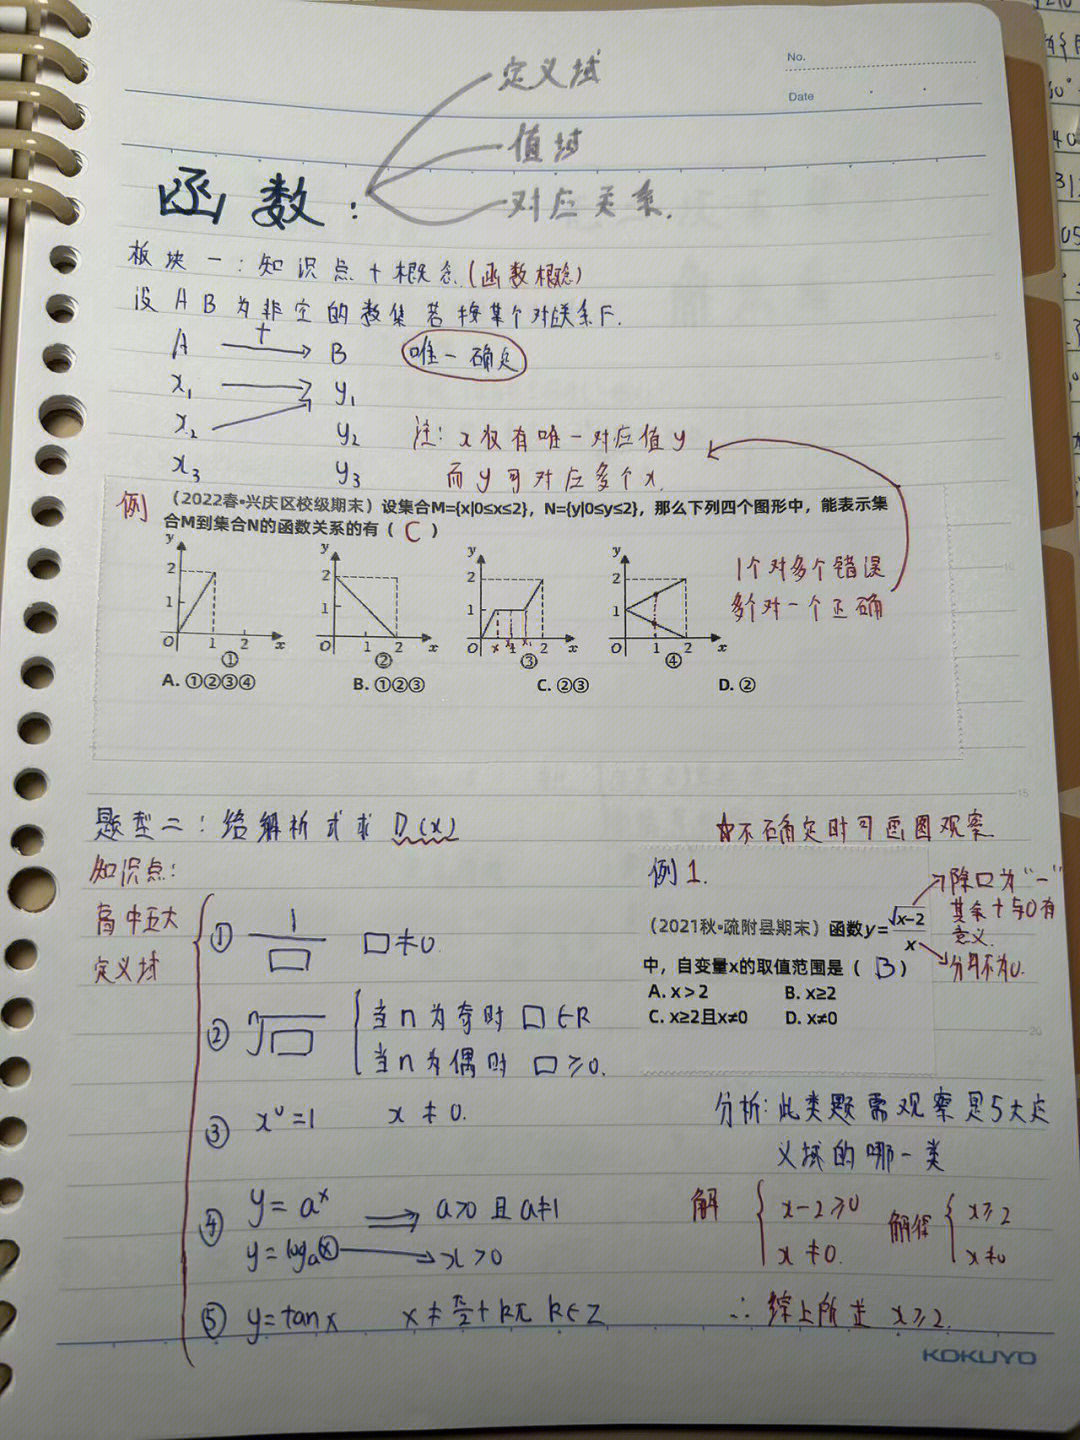 No.
Date
定义域
值域
对应关系.
函数:
板块一:知识点+概念(函数概念)
设 A B 为非空的数集 若按某个对应关系F.
A f B 唯一确定
x₁ y₁
x₂ y₂ 注: x仅有唯一对应值y
x₃ y₃ 而y可对应多个x.
例 (2022春•兴庆区校级期末) 设集合M={x|0≤x≤2}, N={y|0≤y≤2}, 那么下列四个图形中, 能表示集
合M到集合N的函数关系的有 ( C )
y 2 1 O 1 2 x ①
y 2 1 O 1 2 x ②
y 2 1 O x x₂ x₁ 2 x ③
y 2 1 O 1 2 x ④
1个对多个错误
多个对一个正确
A. ①②③④ B. ①②③ C. ②③ D. ②
题型二:给解析式求 D(x)
☆不确定时可画图观察
知识点:
高中五大
定义域
① 1/□ □≠0.
② ⁿ√□ 当n为奇时 □∈R
当n为偶时 □≥0.
③ x⁰=1 x≠0.
④ y=aˣ ⟹ a>0且a≠1
y=logₐx → x>0
⑤ y=tanx x≠π/2+kπ k∈Z
例1.
(2021秋•疏附县期末) 函数y=√(x-2)/x
除□为“-”
其余十与0有
意义.
分母不为0.
中, 自变量x的取值范围是 ( B )
A. x>2 B. x≥2
C. x≥2且x≠0 D. x≠0
分析:此类题需观察是5大定
义域的哪一类
解 { x-2≥0 解得 { x≥2
x≠0. x≠0
∴ 综上所述 x≥2.
KOKUYO